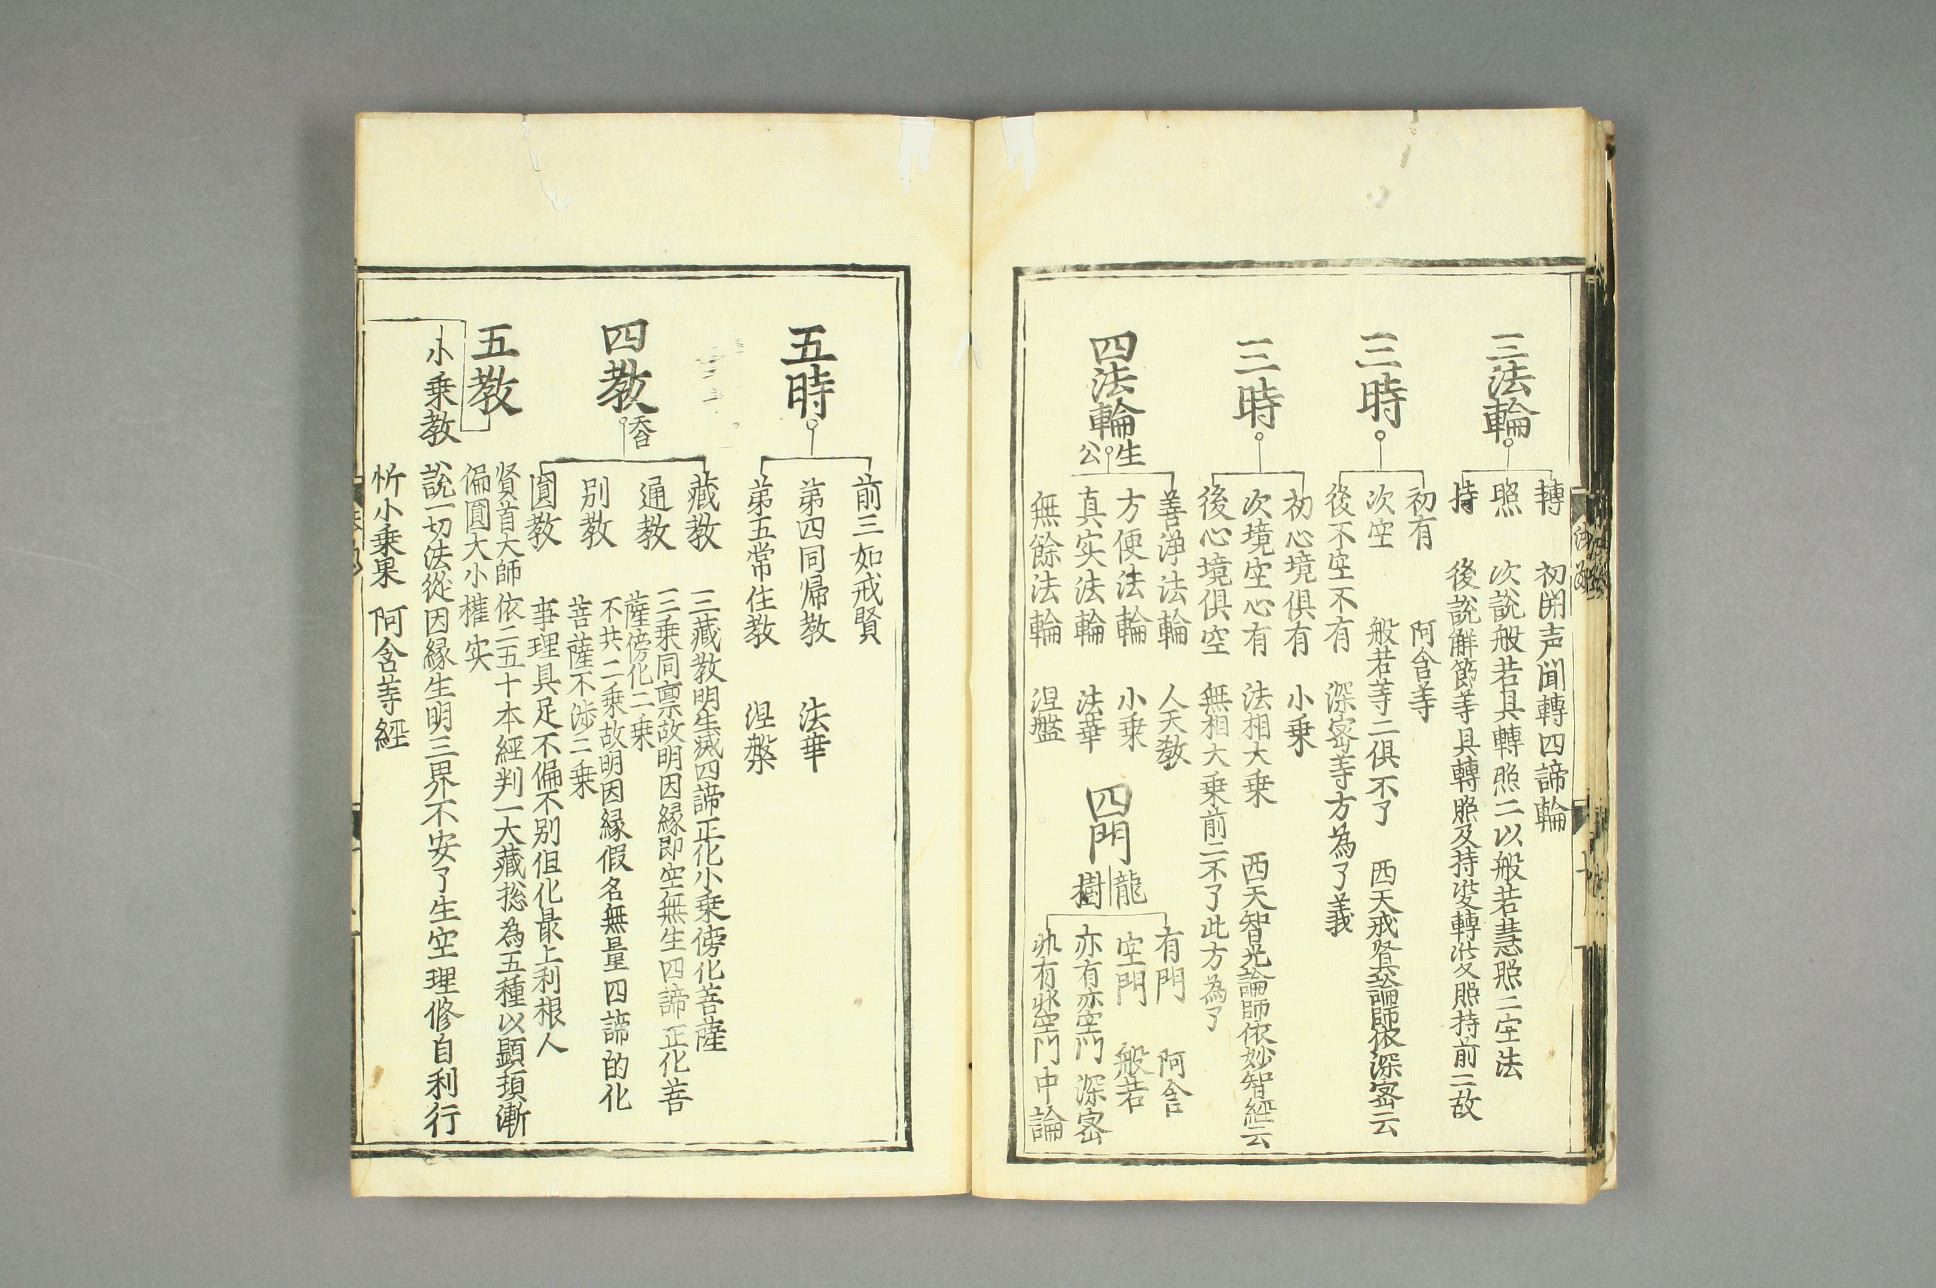 三法輪
轉 初開声聞轉四諦輪
照 次說般若具轉照二以般若慧照二空法
持 後說解節等具轉照及持 前二故
三時
初有 阿含等
次空 般若等二俱不了 西天戒賢論師依深密云
後不空不有 深密等方為了義
三時
初心境俱有 小乗
次境空心有 法相大乗 西天智光論師依妙智經云
後心境俱空 無相大乗前二不了此方為了
四法輪 生公
善浄法輪 人天教
方便法輪 小乗
真实法輪 法華
無餘法輪 涅盤
四門 龍樹
有門 阿含
空門 般若
亦有亦空門 深密
非有非空門 中論
五時
前三如戒賢
第四同帰教 法華
第五常住教 涅槃
四教
藏教 三藏教明生滅四諦正化小乗傍化菩薩
通教 三乗同禀故明因緣即空無生四諦正化菩
薩傍化二乗
別教 不共二乗故明因緣假名無量四諦的化
菩薩不涉二乗
圓教 事理具足不偏不別但化最上利根人
五教
賢首大師依二五十本經判一大藏揔為五種以顕頓漸
偏圓大小權实
小乗教
說一切法從因緣生明三界不安了生空理修自利行
忻小乗果 阿含等經